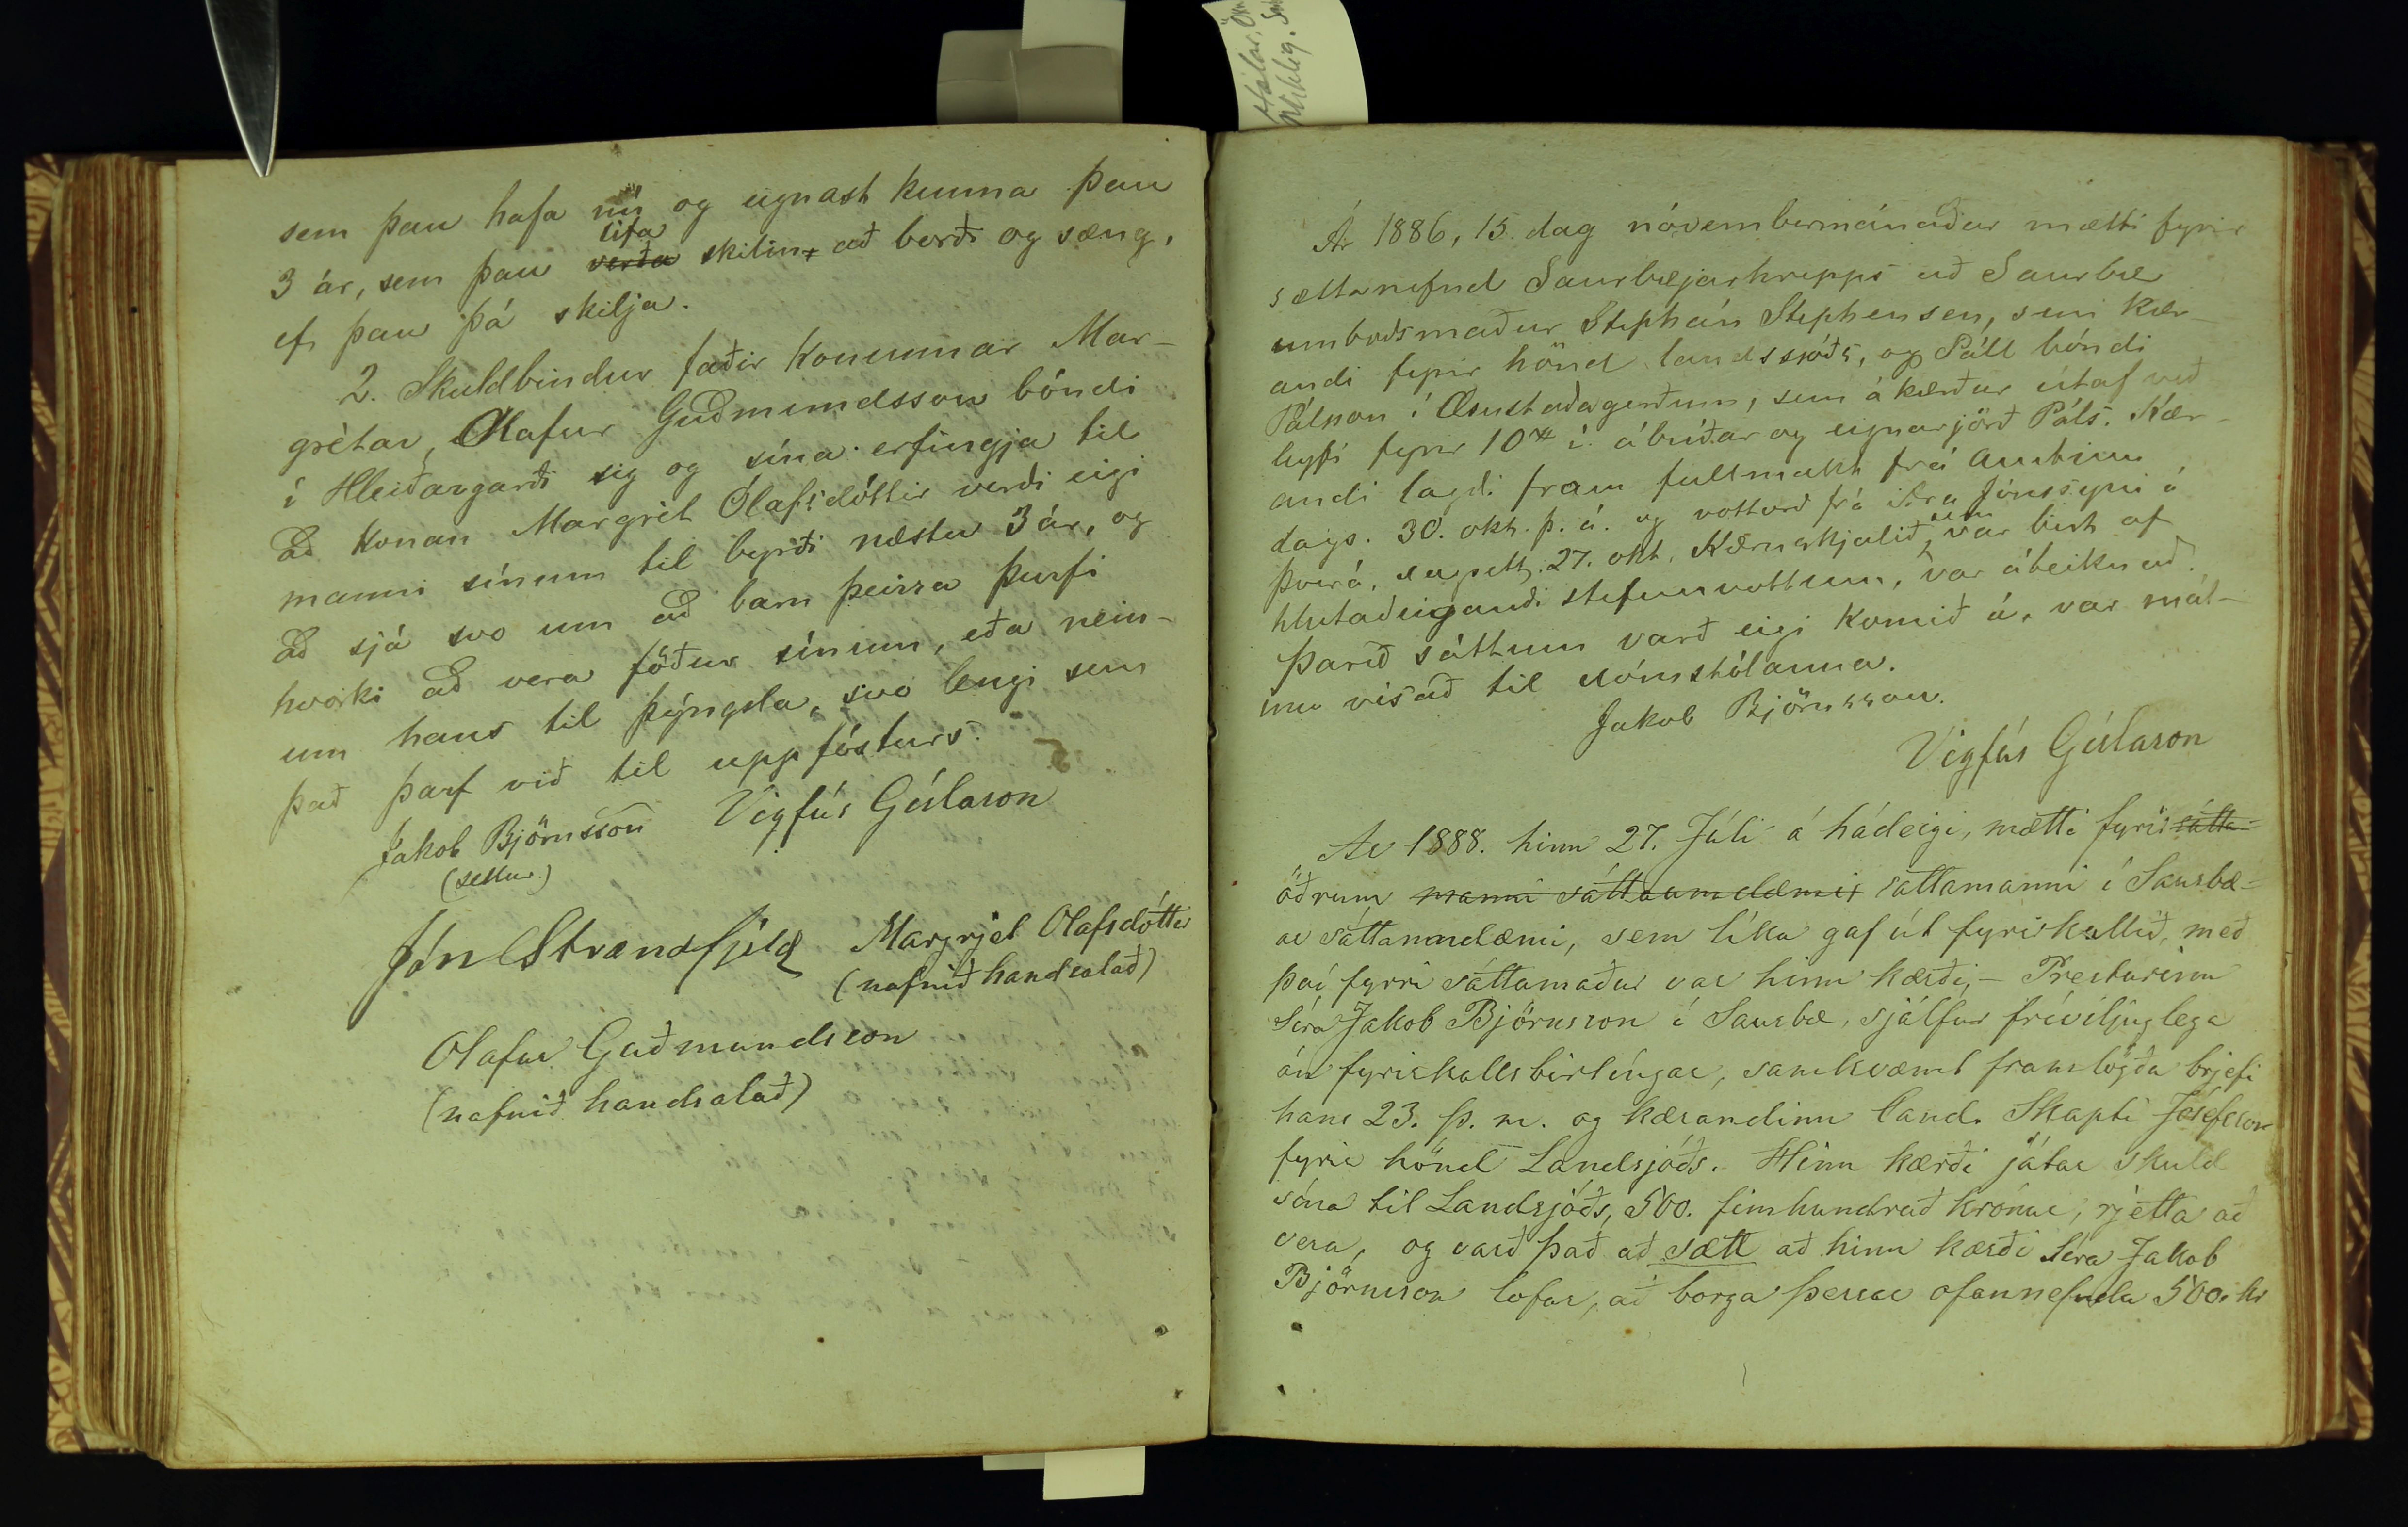 sem þau hafa nú og eignast kunna þau
3 ár, sem þau verða lifa skilin að borði og sæng,
ef þau þá skilja.
2. Skuldbindur faðir konunnar Mar-
grètar, Olafur Guðmundsson bóndi
í Hleiðargarði sig og sína erfingja til
að konan Margrèt Ólafsdóttir verði eigi
manni sínum til byrði næstu 3 ár, og
að sjá svo um að barn þeirra þurfi
hvorki að vera föður sínum, eða nein-
um hans til þýngsla, svo lengi sem
það þarf við til uppfósturs.
Jakob Björnsson Vigfús Gíslason
(settur)
Jón Strandfjeld Margrjet Olafsdóttir
(nafnið handsalað)
Olafur Guðmundsson
(nafnið handsalað)
Hólar,
Ár 1886, 15. dag nóvembermánaðar mætti fyrir
sættanefnd Saurbæjarhrepps að Saurbæ
umboðsmaður Stephán Stephensen, sem kær-
andi fyrir hönd landssjóðs, og Páll bóndi
Pálsson í Æsustaðagerðum, sem ákærður útaf veð
leyfi fyrir 10 í ábúðar og eignarjörð Páls. Kær-
andi lagði fram fullmakt frá amtinu
dags. 30. okt. þ. á. og vottorð frá Jónssyni á
Þverá, dagsett 27. okt. Kæruskjalið, sem var birt af
hlutaðeigandi stefnuvottum, var áteiknað.
Þarið sáttum varð eigi komið á, var mál-
inu vísað til dómstólanna.
Jakob Björnsson.
Vigfús Gíslason
Ár 1888. hinn 27. Júlí á hádeigi, mætti fyrir sátta-
öðrum manni sáttaumdæmis sáttamanni í Saurbæ-
ar sáttaumdæmi, sem líka gaf út fyrirkallið, með
því fyrri sáttamaður var hinn kærði, - Presturinn
Séra Jakob Björnsson í Saurbæ, sjálfur fríviljuglega
án fyrirkallsbirtíngar, samkvæmt framlögðu brjefi
hans 23. þ. m. og kærandinn Cand. Skapti Jósefsson
fyrir hönd Landsjóðs. Hinn kærði játar skuld
sína til Landsjóðs, 500. fimhundrað krónur, rjetta að
vera, og varð það að sætt að hinn kærði Séra Jakob
Björnsson lofar, að borga þessar ofannefndu 500. kr